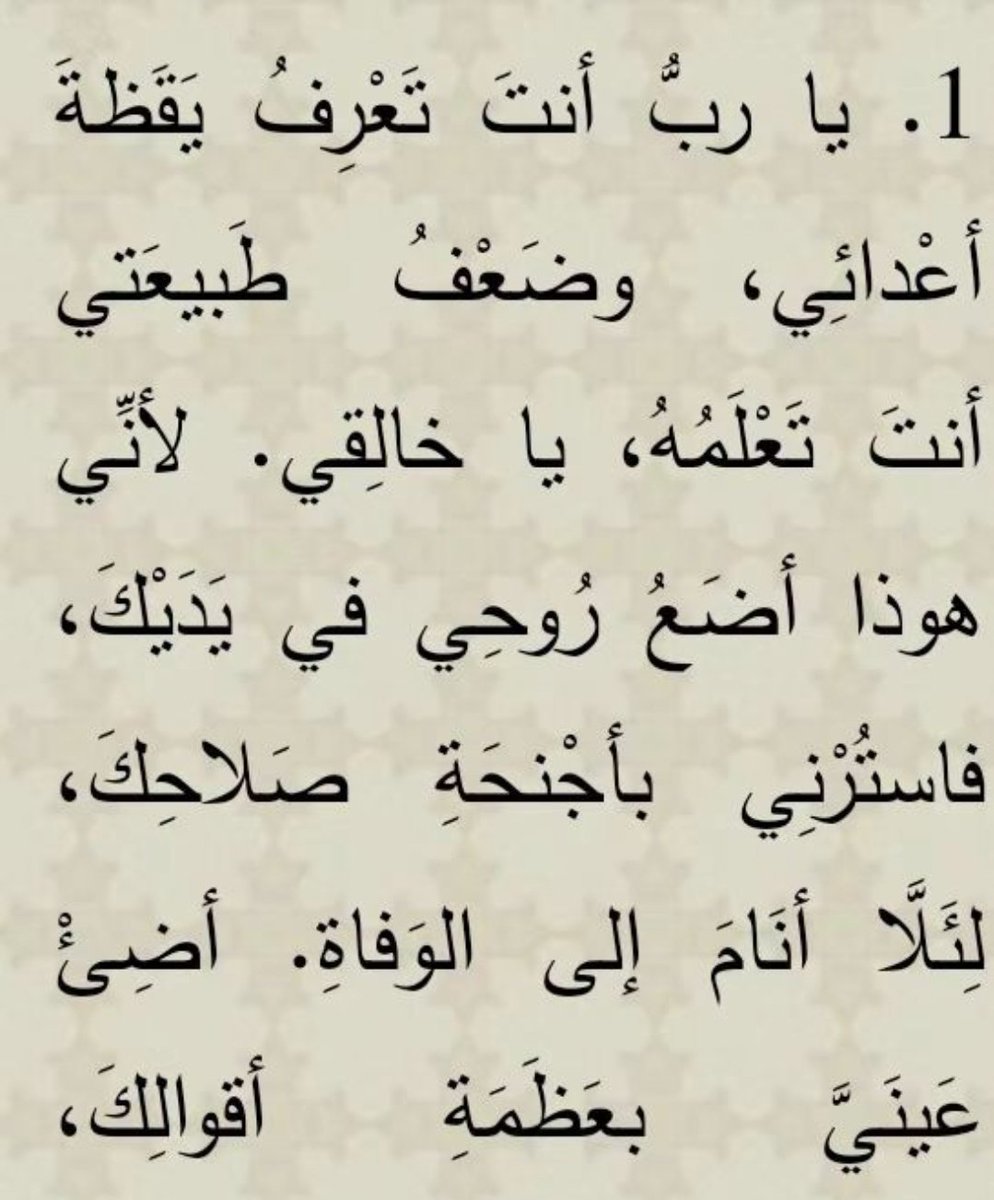 1. يا ربُّ أنتَ تَعْرِفُ يَقَظةَ
أعْدائِي، وضَعْفُ طَبيعَتي
أنتَ تَعْلَمُهُ، يا خالِقِي. لأنِّي
هوذا أضَعُ رُوحِي في يَدَيْكَ،
فاستُرْنِي بأجْنحَةِ صَلاحِكَ،
لِئَلَّا أنَامَ إلى الوَفاةِ. أضِئْ
عَينَيَّ بعَظَمَةِ أقوالِكَ،